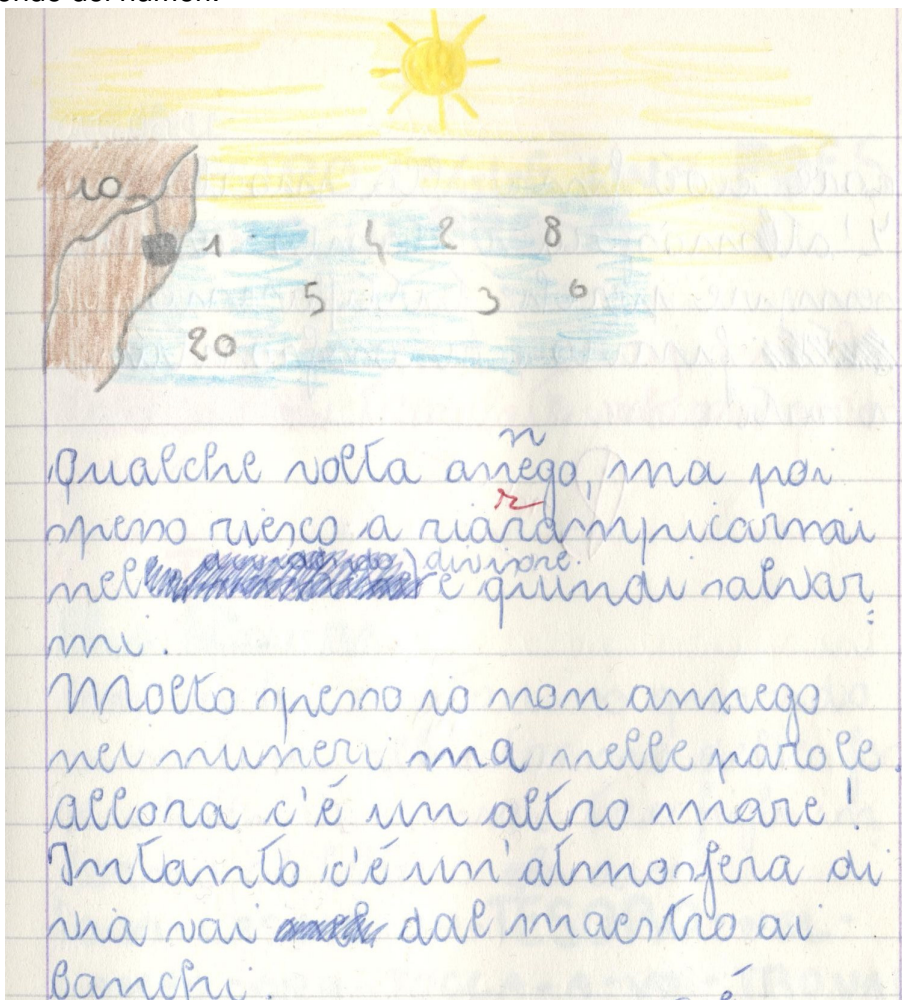 10
1 4 2 8
5 3 6
20
n
Qualche volta annego, ma poi
r
spesso riesco a riarampicarmi
divisore
nel e quindi salvar
mi.
Molto spesso io non annego
nei numeri ma nelle parole.
Allora c'é un altro mare!
Intanto c'é un'atmosfera di
via vai dal maestro ai
banchi.